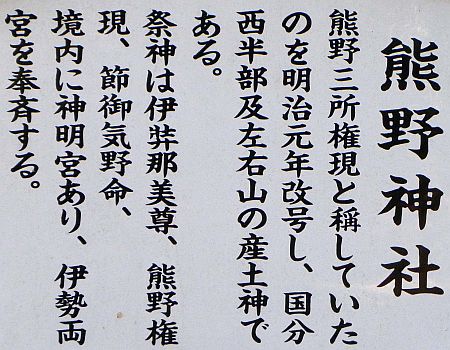 熊野神社
熊野三所権現と稱していた
のを明治元年改号し、国分
西半部及左右山の産土神で
ある。
祭神は伊弉那美尊、熊野権
現、節御気野命、
境内に神明宮あり、伊勢両
宮を奉斉する。